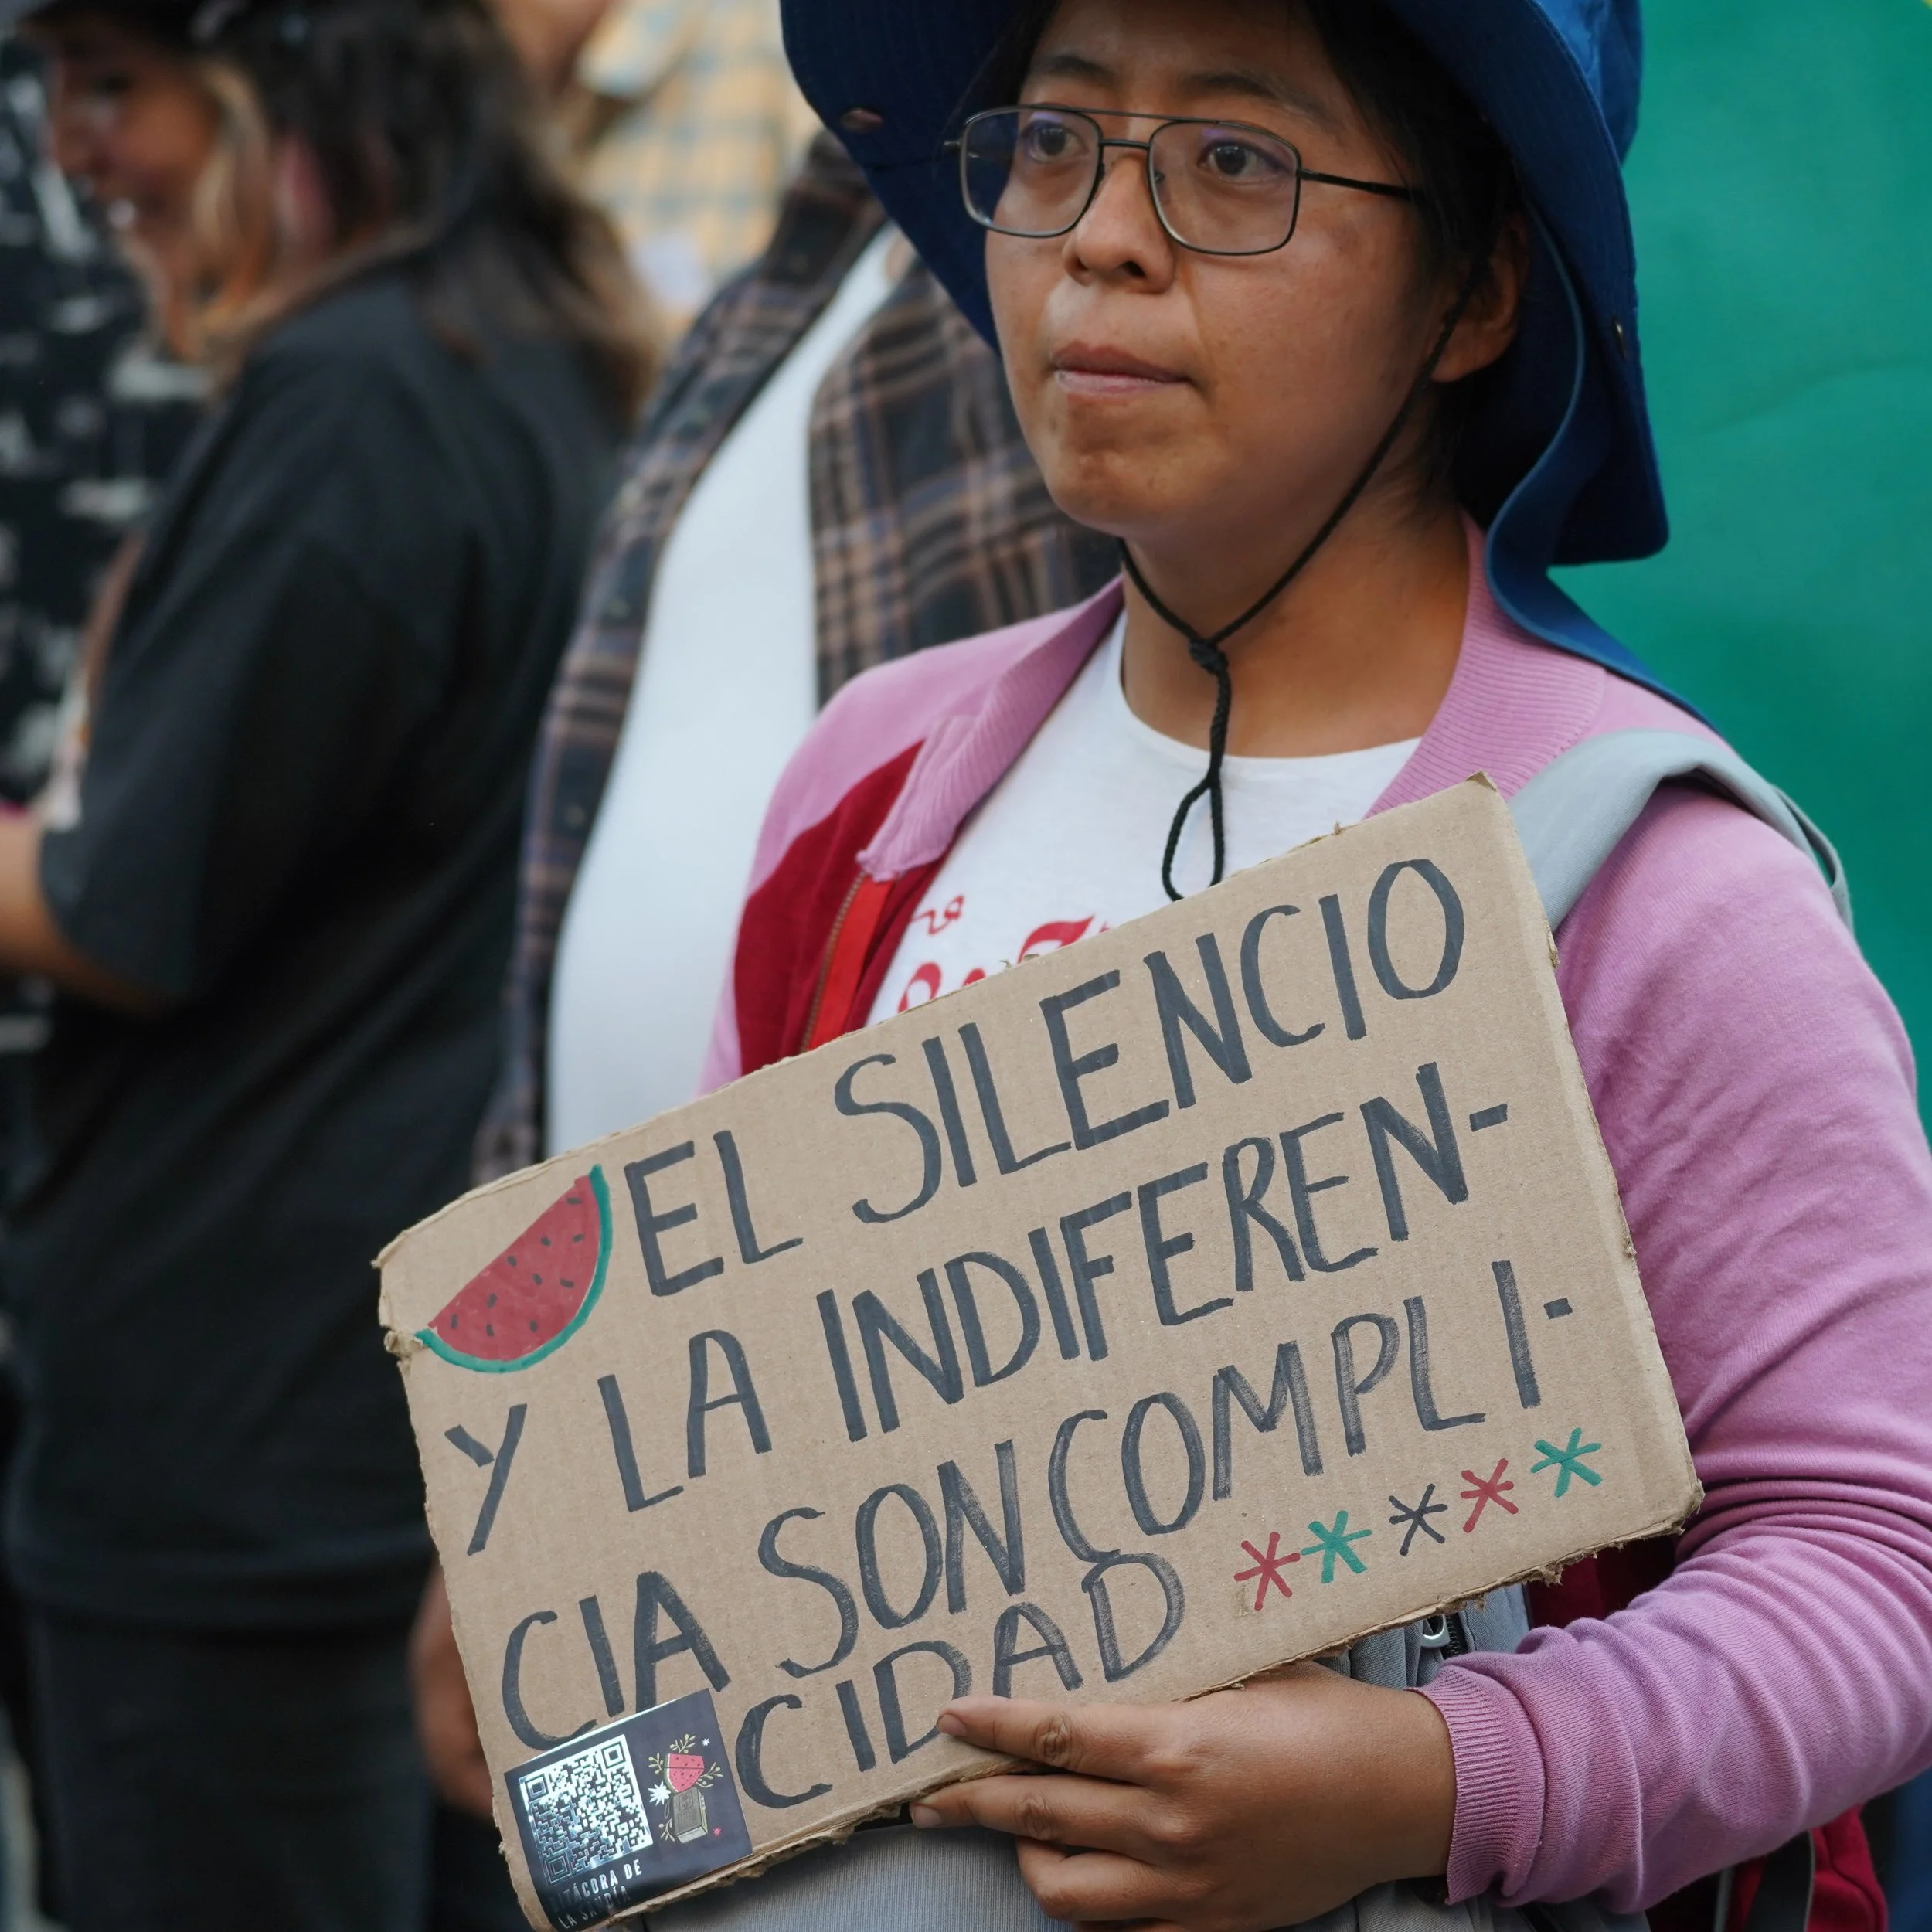 EL SILENCIO
Y LA INDIFEREN-
CIA SON COMPLI-
CIDAD *****
BITÁCORA DE
LA SANDÍA